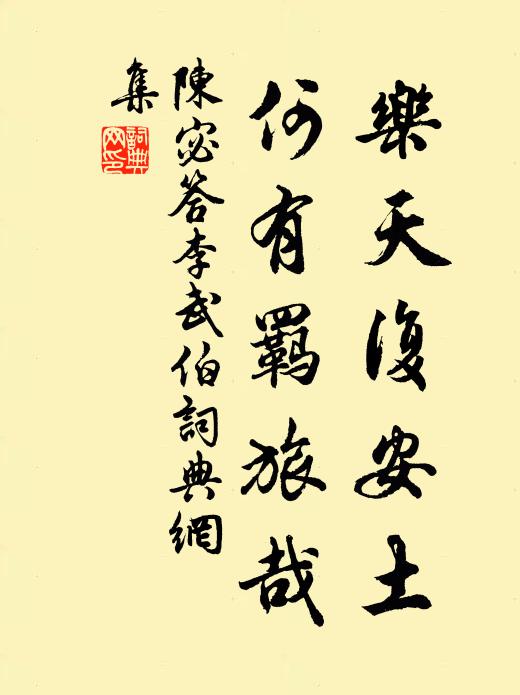 樂天復安土
何有羈旅哉
陳宓答李武伯詞典網
集
詞典
网印